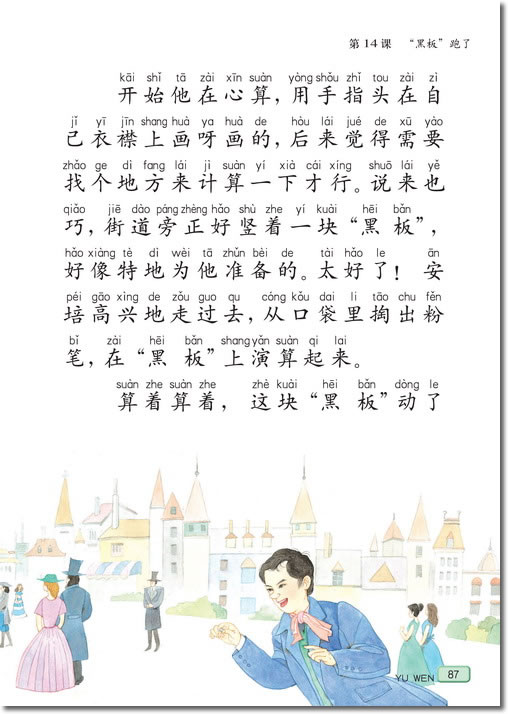 第14课 “黑板”跑了
kāi shǐ tā zài xīn suàn yòng shǒu zhǐ tou zài zì
开始他在心算，用手指头在自
jǐ yī jīn shang huà ya huà de hòu lái jué de xū yào
己衣襟上画呀画的，后来觉得需要
zhǎo ge dì fang lái jì suàn yí xià cái xíng shuō lái yě
找个地方来计算一下才行。说来也
qiǎo jiē dào páng zhèng hǎo shù zhe yí kuài hēi bǎn
巧，街道旁正好竖着一块“黑板”，
hǎo xiàng tè dì wèi tā zhǔn bèi de tài hǎo le ān
好像特地为他准备的。太好了！安
péi gāo xìng de zǒu guo qu cóng kǒu dai li tāo chu fěn
培高兴地走过去，从口袋里掏出粉
bǐ zài hēi bǎn shang yǎn suàn qi lai
笔，在“黑板”上演算起来。
suàn zhe suàn zhe zhè kuài hēi bǎn dòng le
算着算着，这块“黑板”动了
YU WEN 87